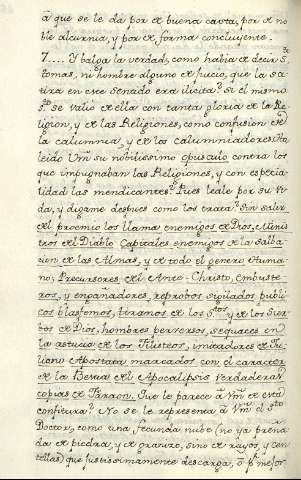 à que se le dá por de buena casta, por de no
ble alcurnia, y por de forma concluyente.
7.... Y balga la verdad, como habia de decir Sto
tomas, ni hombre alguno de juicio, que la sa
tira en este senado era ilicita? Si el mismo
Sto se valió de ella con tanta gloria de la Re
ligion, y de las Religiones, como confusion de
la calumnia, y de los calumniadores? Ha
leido Vm su nobilissimo opusculo contra los
que impugnaban las Religiones, y con especia
lidad las mendicantes? Pues leale por su vi
da, y digame despues como los trata? Sin salir
del proemio los llama enemigos de Dios, Minis
tros del Diablo Capitales enemigos de la Salba
cion de las Almas, y de todo el genero huma
no; Precursores del Ante-Christo, embuste
ros, y engañadores, reprobos sigilados publi
cos blasfemos, tiranos de los Stos y de los Sier
bos de Dios, hombres perversos, sequaces en
la astucia de los Filisteos, imitadores de Ju
liano Apostata marcados con el caracter
de la Bestia del Apocalipsis verdaderas
copias de Faraon. Que le parece à Vm de esta
confitura? No se le representa à Vm el Sto
Doctor, como una fecunda nube (no ya preña
da de piedra, y de granizo, sino de rayos, y cen
tellas) que justissimamente descarga, ò por mejor